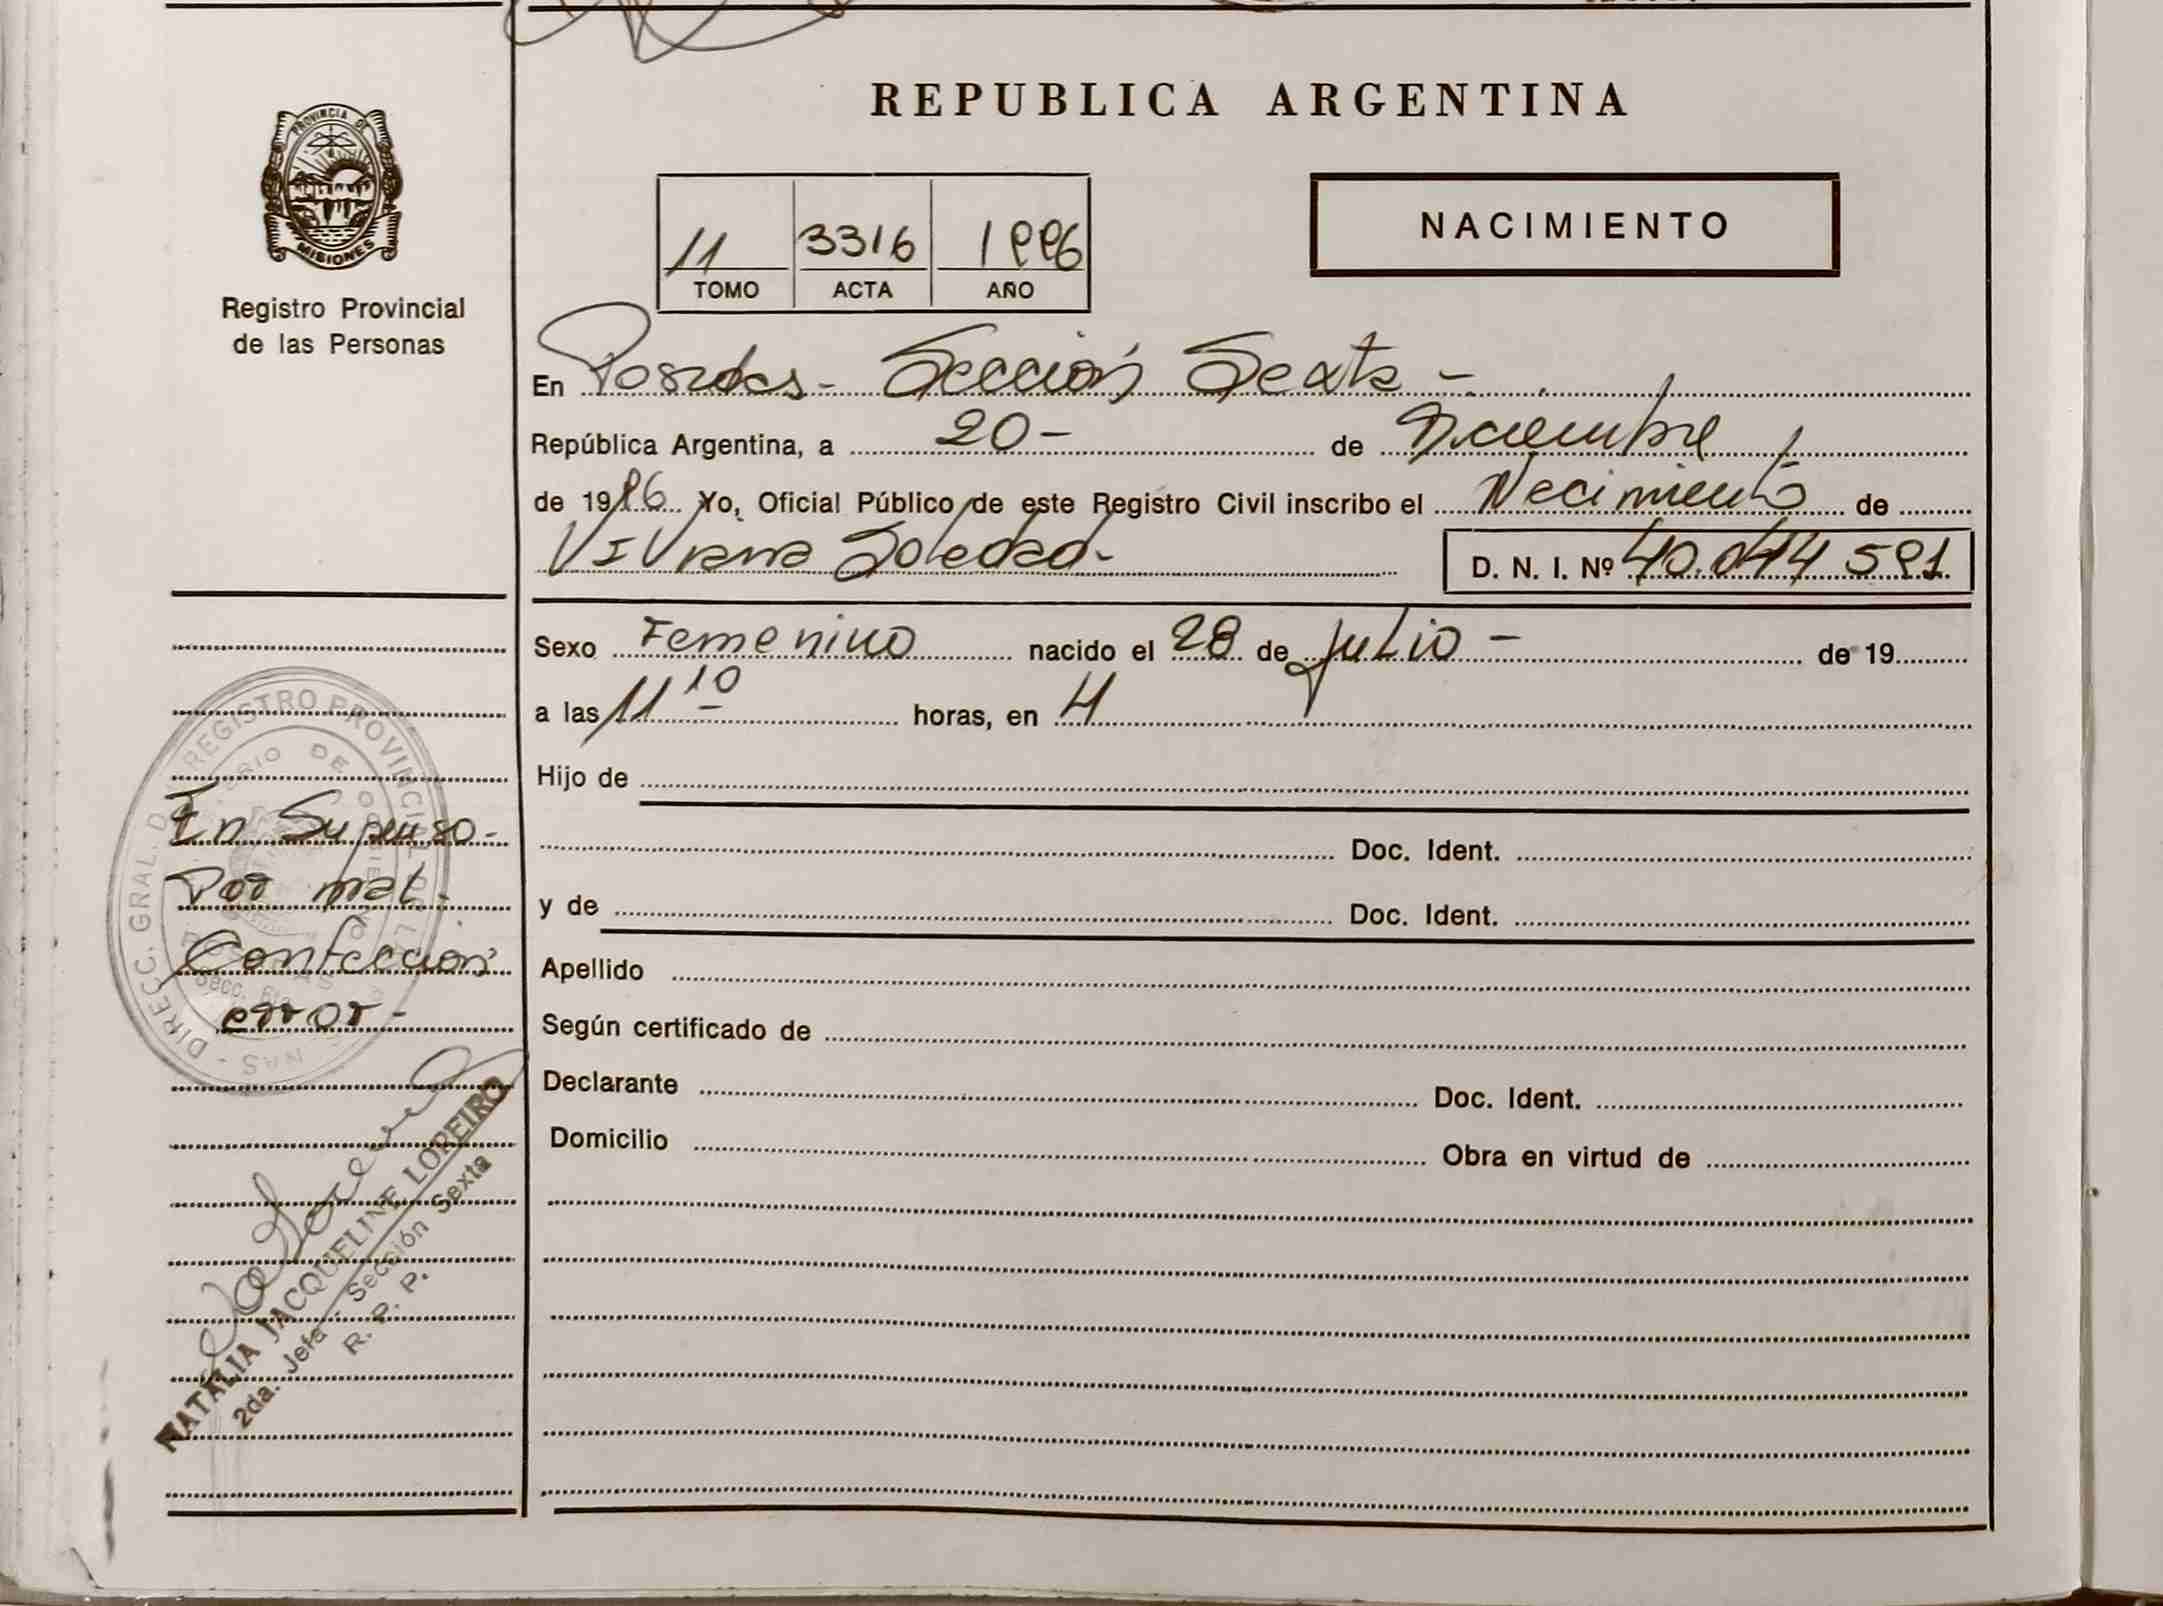 REPUBLICA ARGENTINA
PROVINCIA DE
MISIONES
Registro Provincial
de las Personas
11 3316 1996
TOMO ACTA AÑO
NACIMIENTO
En Posadas - Sección Sexta -
República Argentina, a 20 - de Diciembre
de 1996 Yo, Oficial Público de este Registro Civil inscribo el Nacimiento de
Viviana Soledad - D. N. I. Nº 40.044 591
Sexo Femenino nacido el 28 de Julio - de 19
a las 11 10 horas, en 4
Hijo de
Doc. Ident.
y de Doc. Ident.
Apellido
Según certificado de
Declarante Doc. Ident.
Domicilio Obra en virtud de
En Suspenso -
Por mal -
Confección
error -
DIRECC. GRAL. REGISTRO PROVINCIAL DE LAS
Secc. 6ta
NATALIA JACQUELINE LOREIRO
2da. Jefa - Sección Sexta
R. P. P.